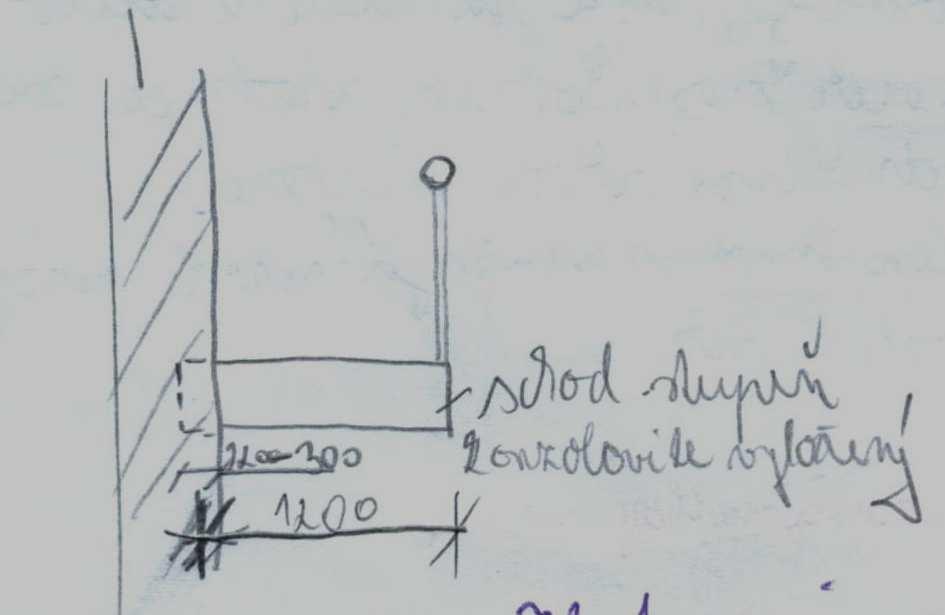 schod. stupeň
konzolovite vyložený
200-300
1200